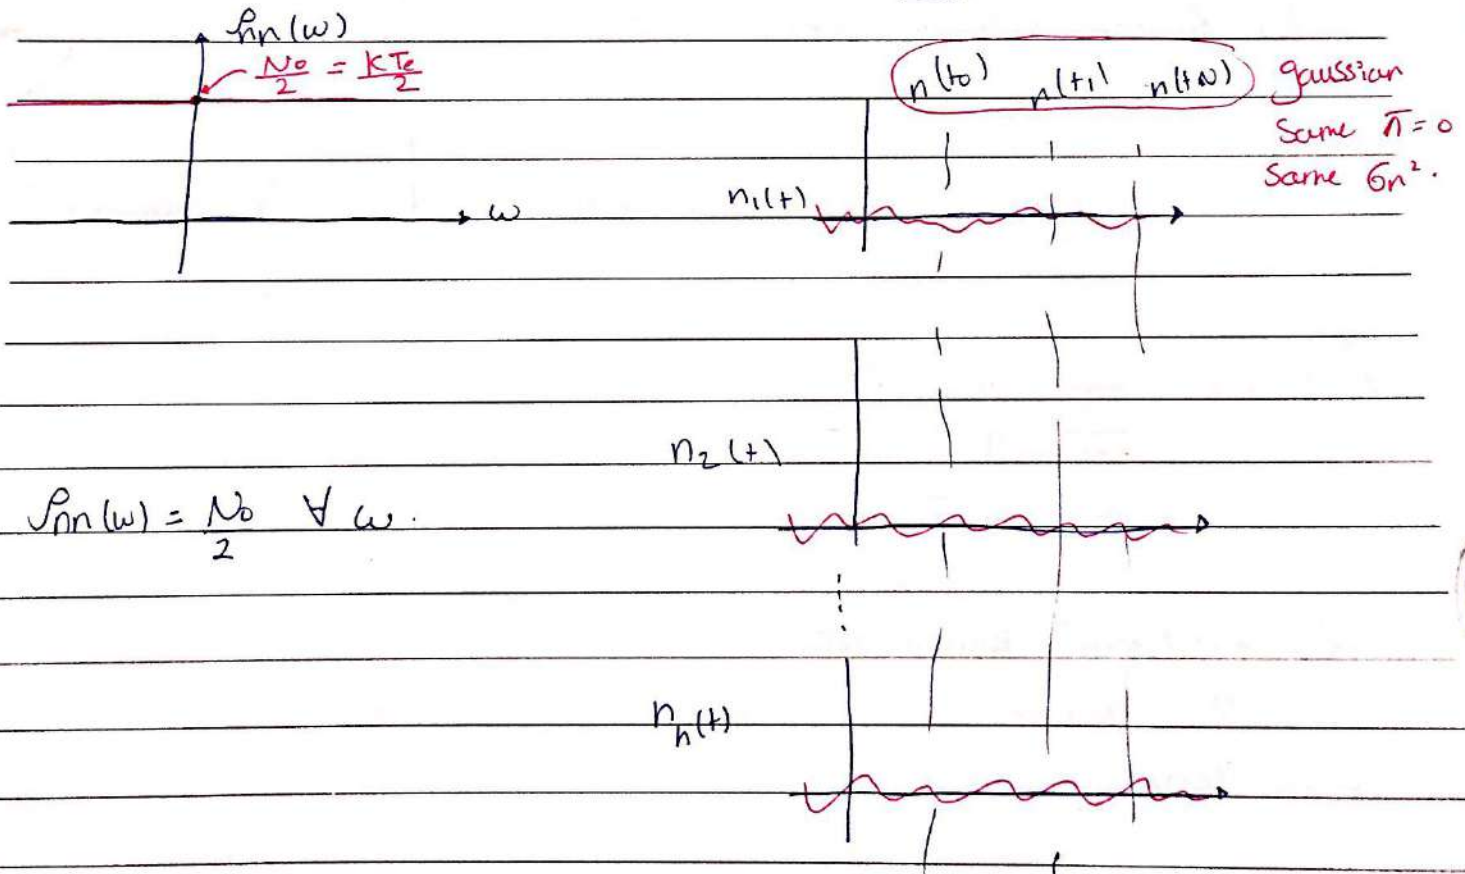 Snn(ω)
No/2 = KTe/2
ω
n(t0) n(t1) n(tN) gaussian
Same n̄ = 0
Same σn².
n1(t)
n2(t)
Snn(ω) = No/2 ∀ ω.
nn(t)